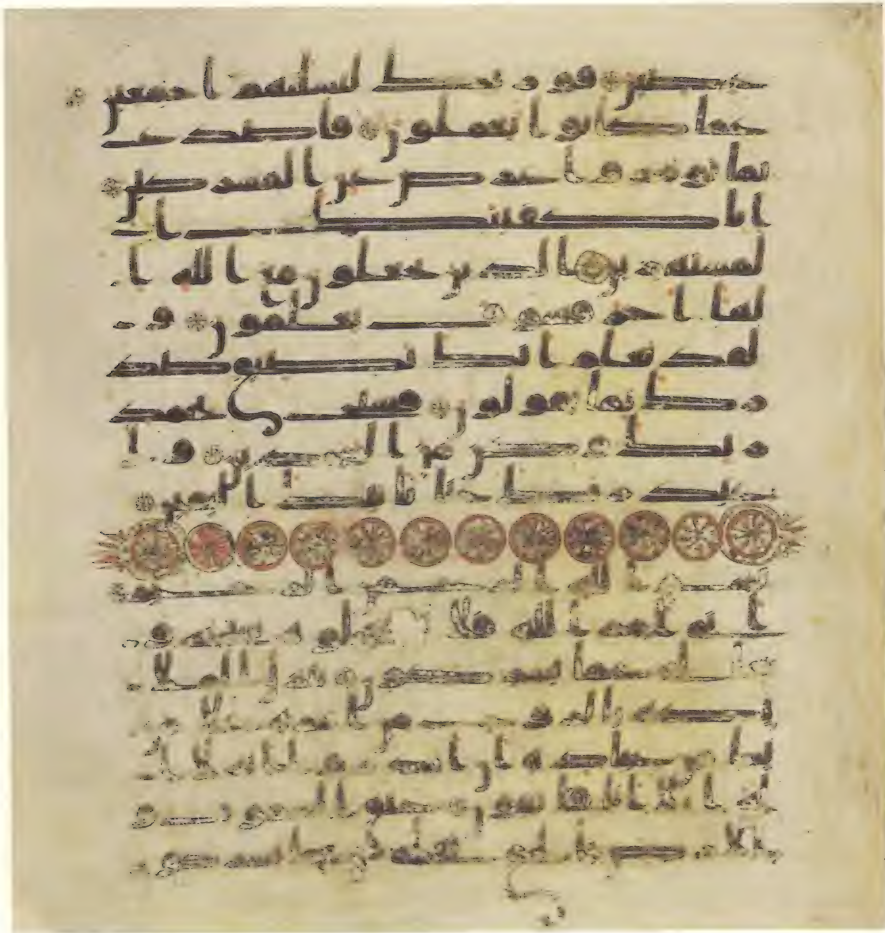 عضين فوربك لنسلنهم اجمعين
عما كانوا يعملون فاصدع
بما تومر واعرض عن المشركين
انا كفينك ا
لمستهزين الذين يجعلون مع الله ا
لها اخر فسوف يعلمون و
لقد نعلم انك يضيق صد
رك بما يقولون فسبح بحمد
ربك وكن من السجدين وا
عبد ربك حتى ياتيك اليقين
بسم الله الرحمن الرحيم
اتى امر الله فلا تستعجلوه سبحنه و
تعلى عما يشركون ينزل الملا
ئكة بالروح من امره على من
يشا من عباده ان انذروا انه لا ا
له الا انا فاتقون خلق السموت و
الارض بالحق تعلى عما يشركون